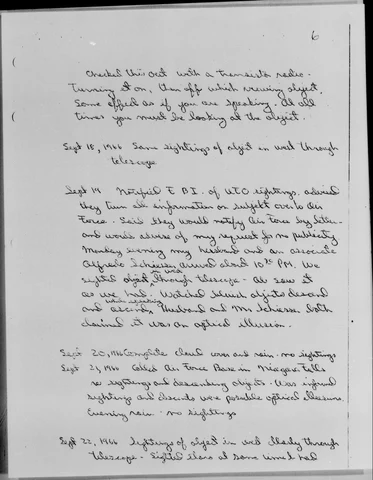 6
Checked this out with a transistor radio.
Turning it on, then off while viewing object.
Same effect as if you are speaking. At all
times you must be looking at the object.
Sept 18, 1966 Same sightings of object in west through
telescope
Sept 19 Notified F. B. I. of UFO sightings, advised
they turn all information on subject over to Air
Force. Said they would notify Air Force by letter
and would advise of my request for no publicity
Monday evening my husband and an associate
Alfredo arrived about 10 PM. We
sighted object in west through telescope - All saw it
as we had. Watched objects descend
and ascend, Husband and Mr. both
claimed it was an optical illusion.
Sept 20, 1966 Complete cloud cover and rain - no sightings
Sept 21, 1966 Called Air Force Base in Niagara Falls
re sightings and descending objects. Was informed
sightings and descends were possible optical illusions.
Evening rain - no sightings
Sept 22, 1966 Sightings of object in west through
telescope - Sighted at same time I had